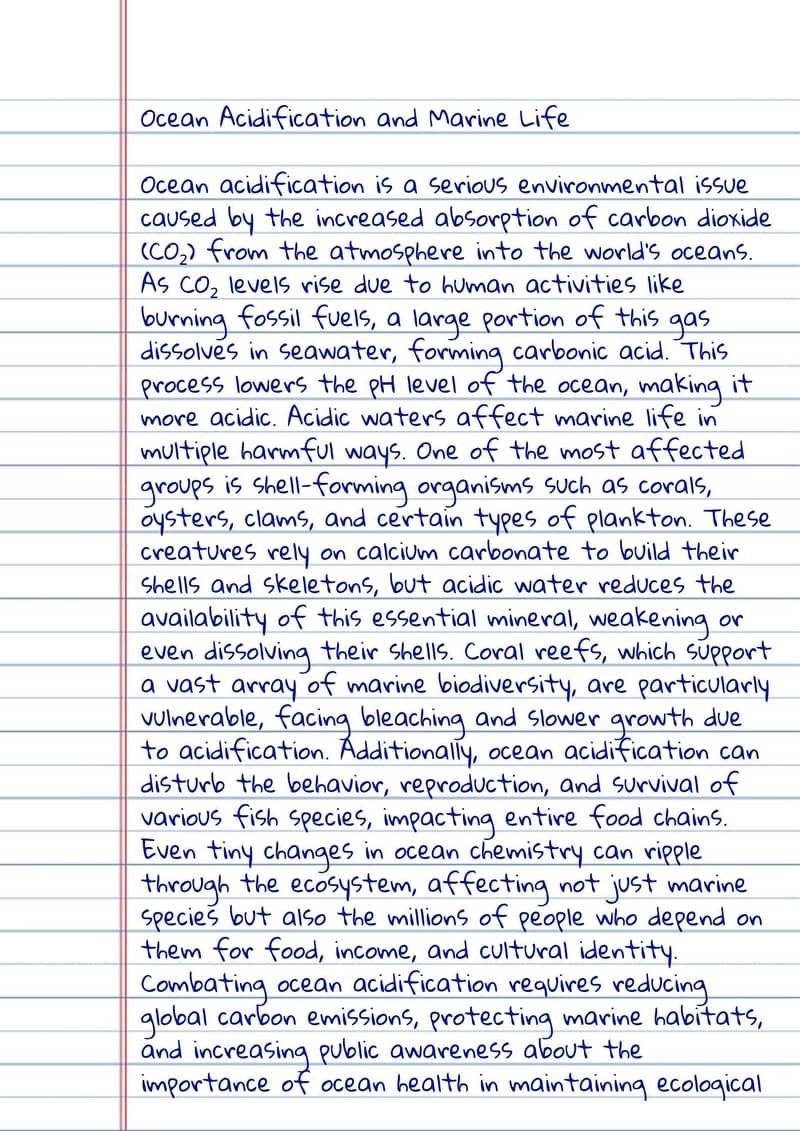 Ocean Acidification and Marine Life
Ocean acidification is a serious environmental issue
caused by the increased absorption of carbon dioxide
(CO₂) from the atmosphere into the world's oceans.
As CO₂ levels rise due to human activities like
burning fossil fuels, a large portion of this gas
dissolves in seawater, forming carbonic acid. This
process lowers the pH level of the ocean, making it
more acidic. Acidic waters affect marine life in
multiple harmful ways. One of the most affected
groups is shell-forming organisms such as corals,
oysters, clams, and certain types of plankton. These
creatures rely on calcium carbonate to build their
shells and skeletons, but acidic water reduces the
availability of this essential mineral, weakening or
even dissolving their shells. Coral reefs, which support
a vast array of marine biodiversity, are particularly
vulnerable, facing bleaching and slower growth due
to acidification. Additionally, ocean acidification can
disturb the behavior, reproduction, and survival of
various fish species, impacting entire food chains.
Even tiny changes in ocean chemistry can ripple
through the ecosystem, affecting not just marine
species but also the millions of people who depend on
them for food, income, and cultural identity.
Combating ocean acidification requires reducing
global carbon emissions, protecting marine habitats,
and increasing public awareness about the
importance of ocean health in maintaining ecological